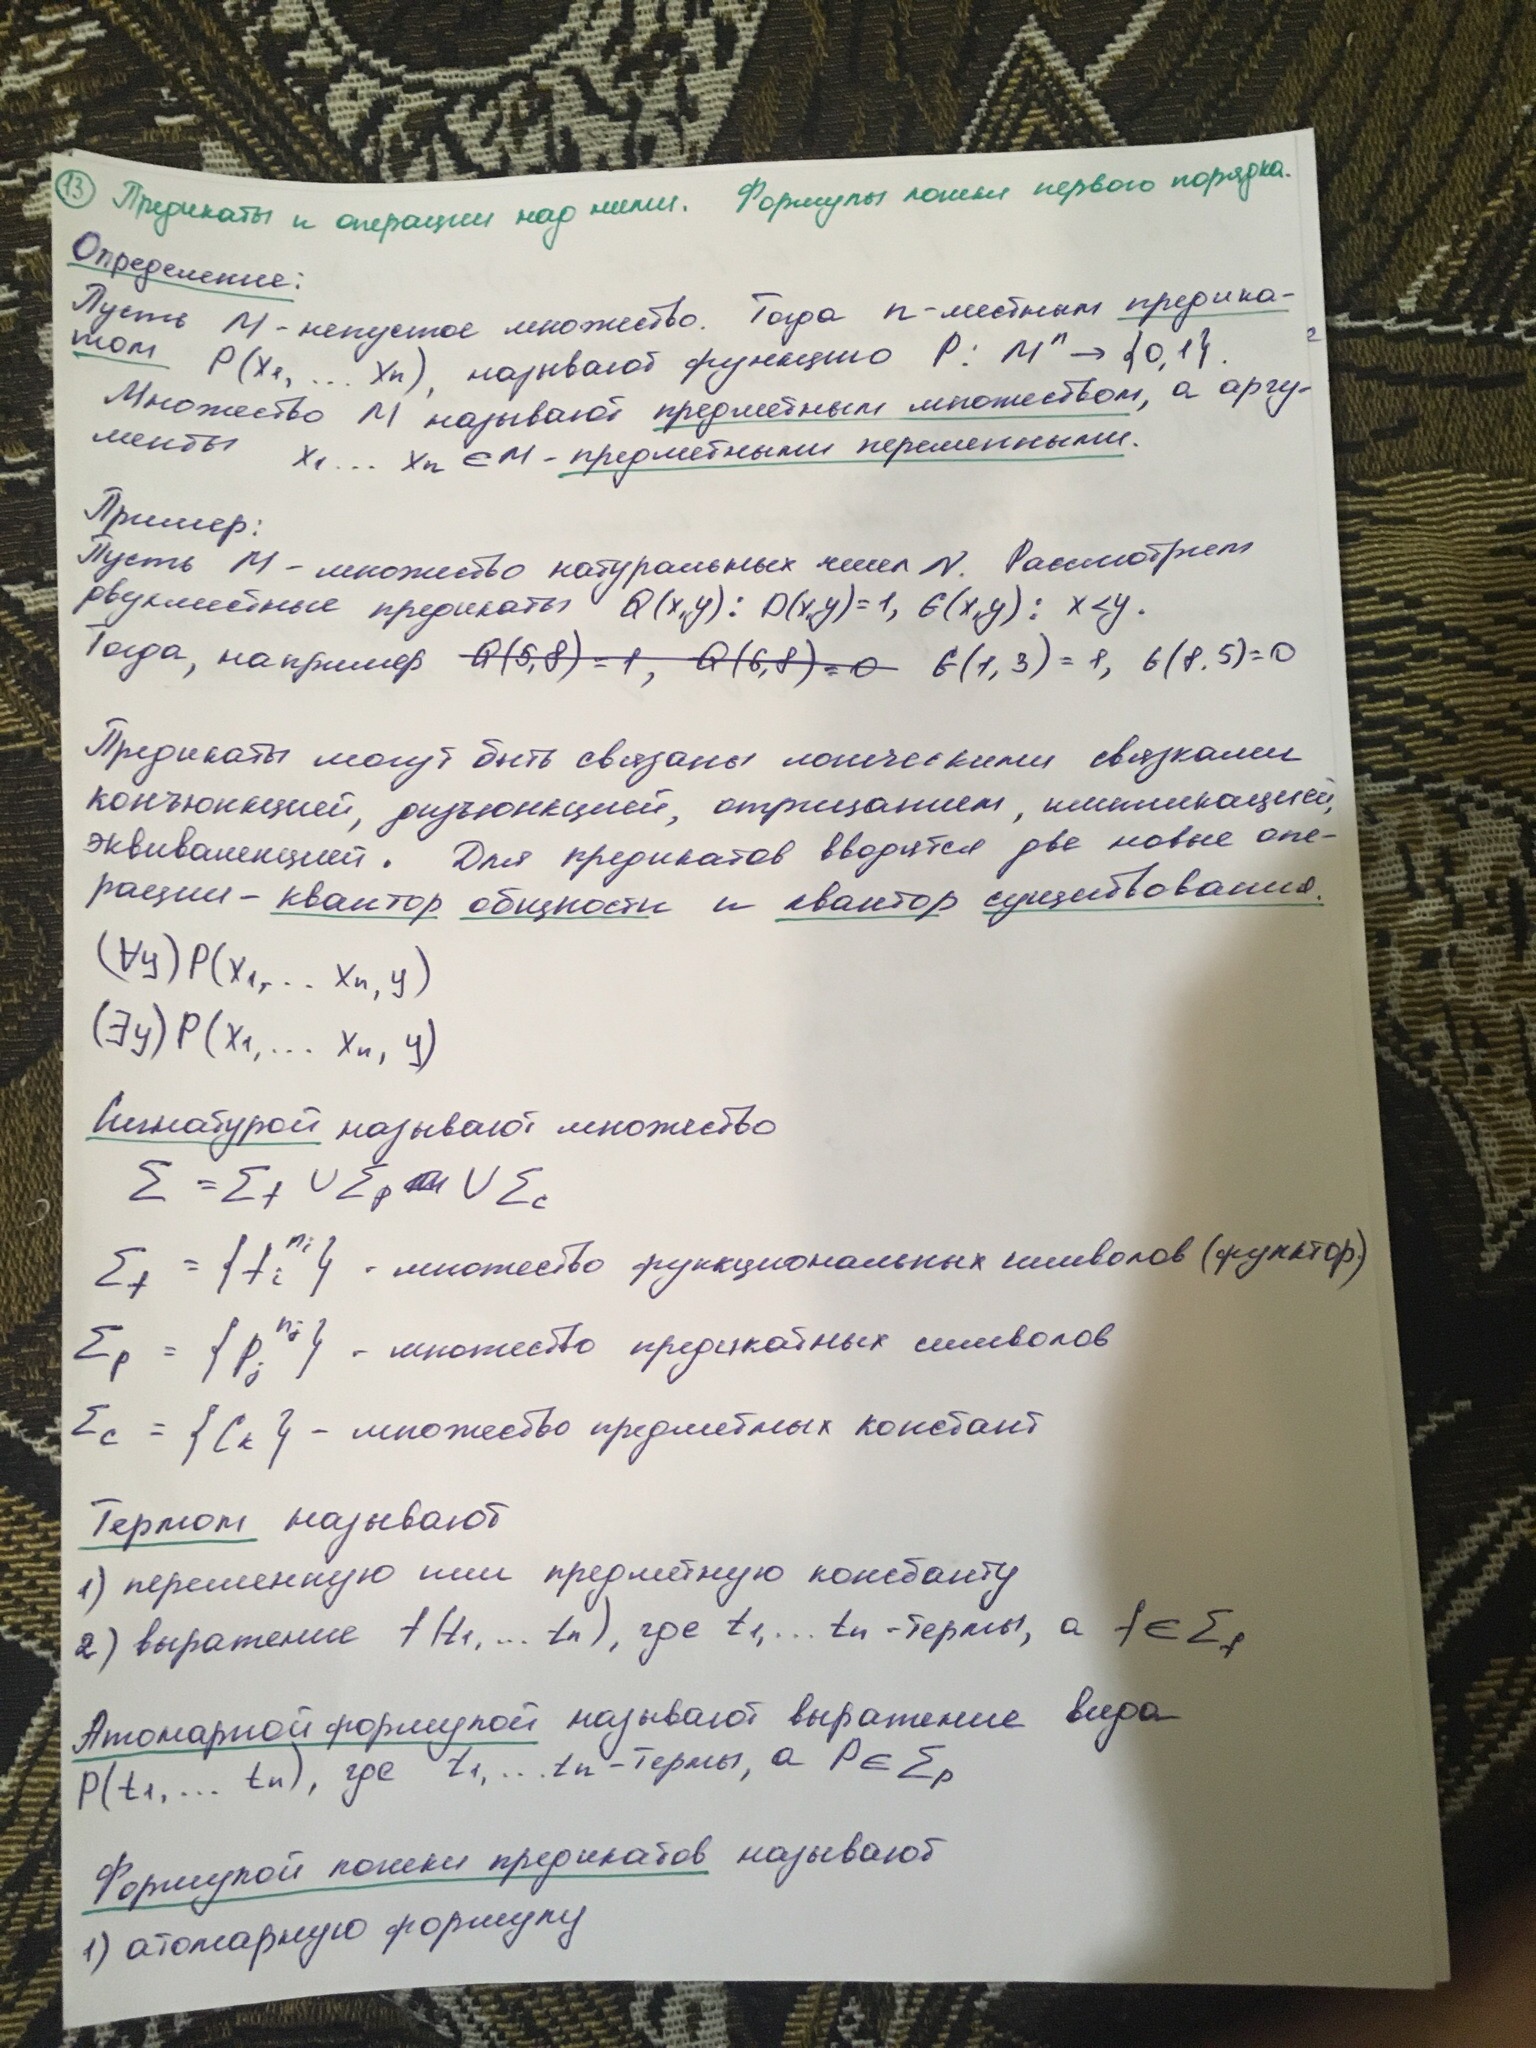 13 Предикаты и операции над ними. Формулы логики первого порядка.
Определение:
Пусть M - непустое множество. Тогда n-местным предика-
том P(x₁, ... xₙ), называют функцию P: Mⁿ → {0,1}.
Множество M называют предметным множеством, а аргу-
менты x₁ ... xₙ ∈ M - предметными переменными.
Пример:
Пусть M - множество натуральных чисел N. Рассмотрим
двухместные предикаты Q(x,y): D(x,y)=1, G(x,y): x<y.
Тогда, например Q(5,8)=1, Q(6,8)=0 G(1,3)=1, G(8.5)=0
Предикаты могут быть связаны логическими связками
конъюнкцией, дизъюнкцией, отрицанием, импликацией,
эквиваленцией. Для предикатов вводятся две новые опе-
рации - квантор общности и квантор существования.
(∀y)P(x₁, ... xₙ, y)
(∃y)P(x₁, ... xₙ, y)
Сигнатурой называют множество
Σ = Σf ∪ Σp ∪ Σc
Σf = {fᵢⁿⁱ} - множество функциональных символов (функтор)
Σp = {pⱼⁿʲ} - множество предикатных символов
Σc = {Cₖ} - множество предметных констант
Термом называют
1) переменную или предметную константу
2) выражение f(t₁, ... tₙ), где t₁, ... tₙ - термы, а f ∈ Σf
Атомарной формулой называют выражение вида
P(t₁, ... tₙ), где t₁, ... tₙ - термы, а P ∈ Σp
Формулой логики предикатов называют
1) атомарную формулу